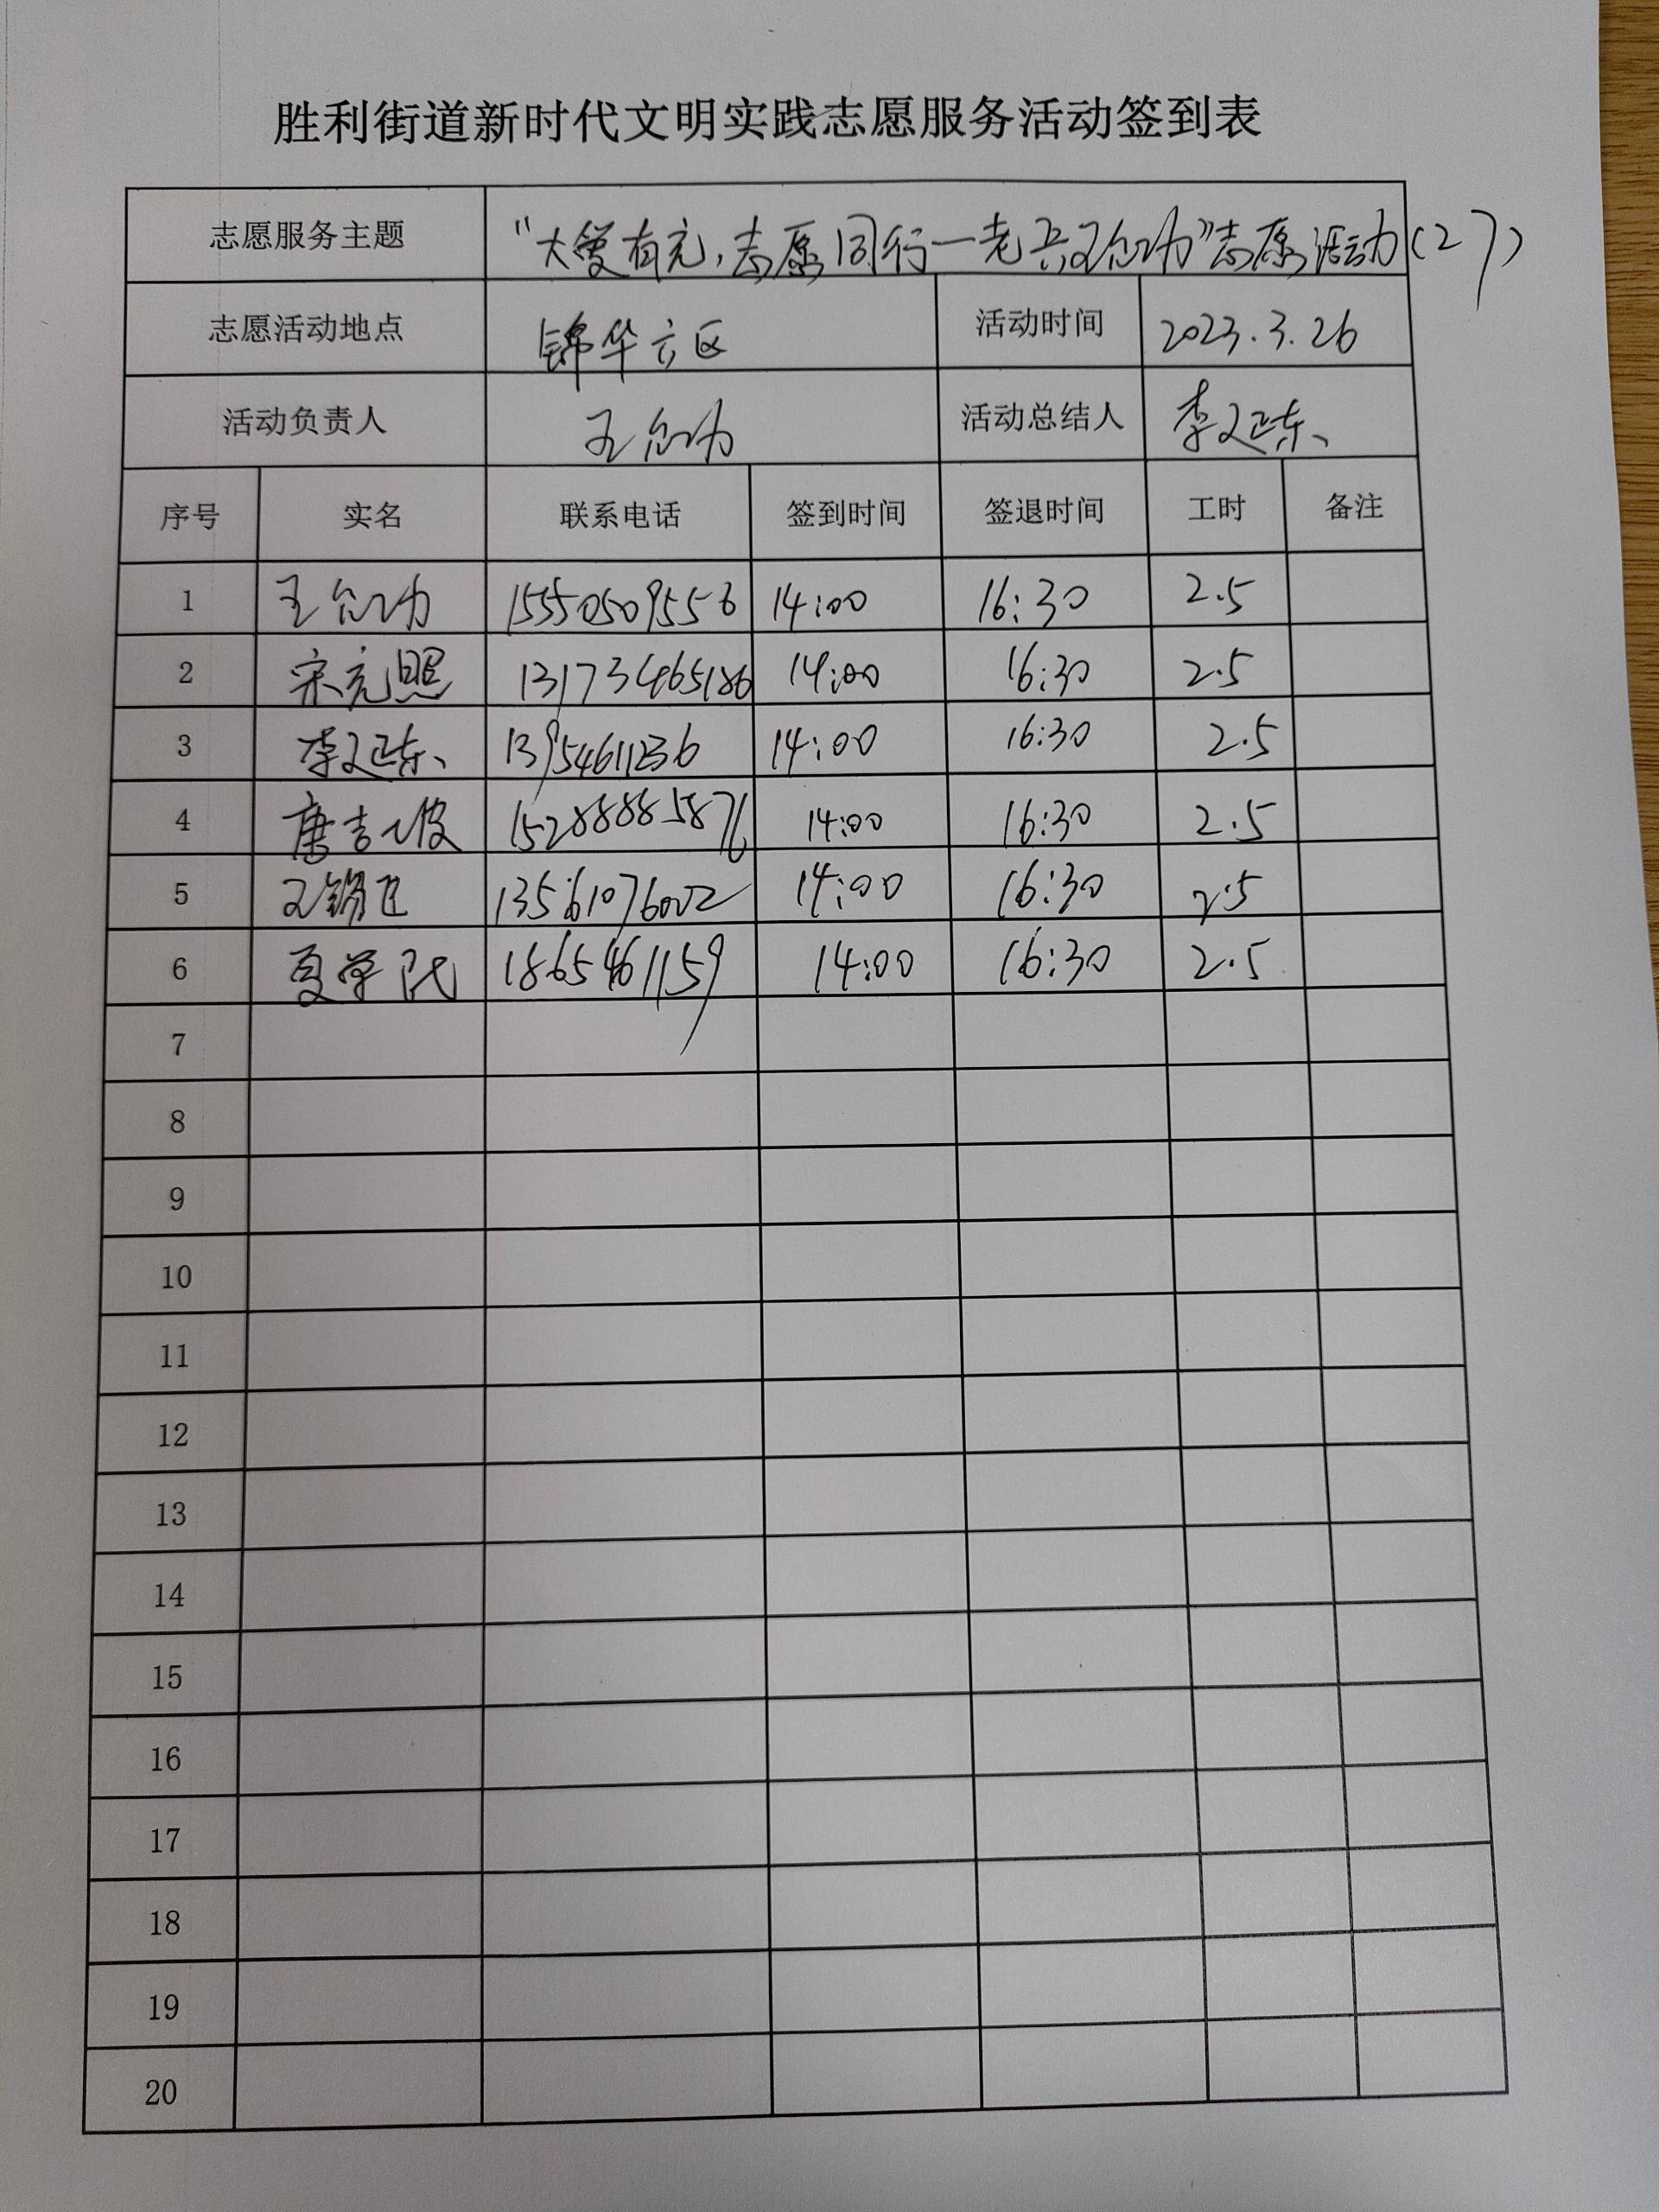 胜利街道新时代文明实践志愿服务活动签到表
志愿服务主题 "大爱有元,志愿同行一老兵王立功"志愿活动(27)
志愿活动地点 锦华六区 活动时间 2023.3.26
活动负责人 王立功 活动总结人 李延东
序号 实名 联系电话 签到时间 签退时间 工时 备注
1 王立功 15550509556 14:00 16:30 2.5
2 宋元照 13173465186 14:00 16:30 2.5
3 李延东 13954611236 14:00 16:30 2.5
4 唐吉波 15288885876 14:00 16:30 2.5
5 13561076002 14:00 16:30 2.5
6 夏学民 1865461159 14:00 16:30 2.5
7
8
9
10
11
12
13
14
15
16
17
18
19
20